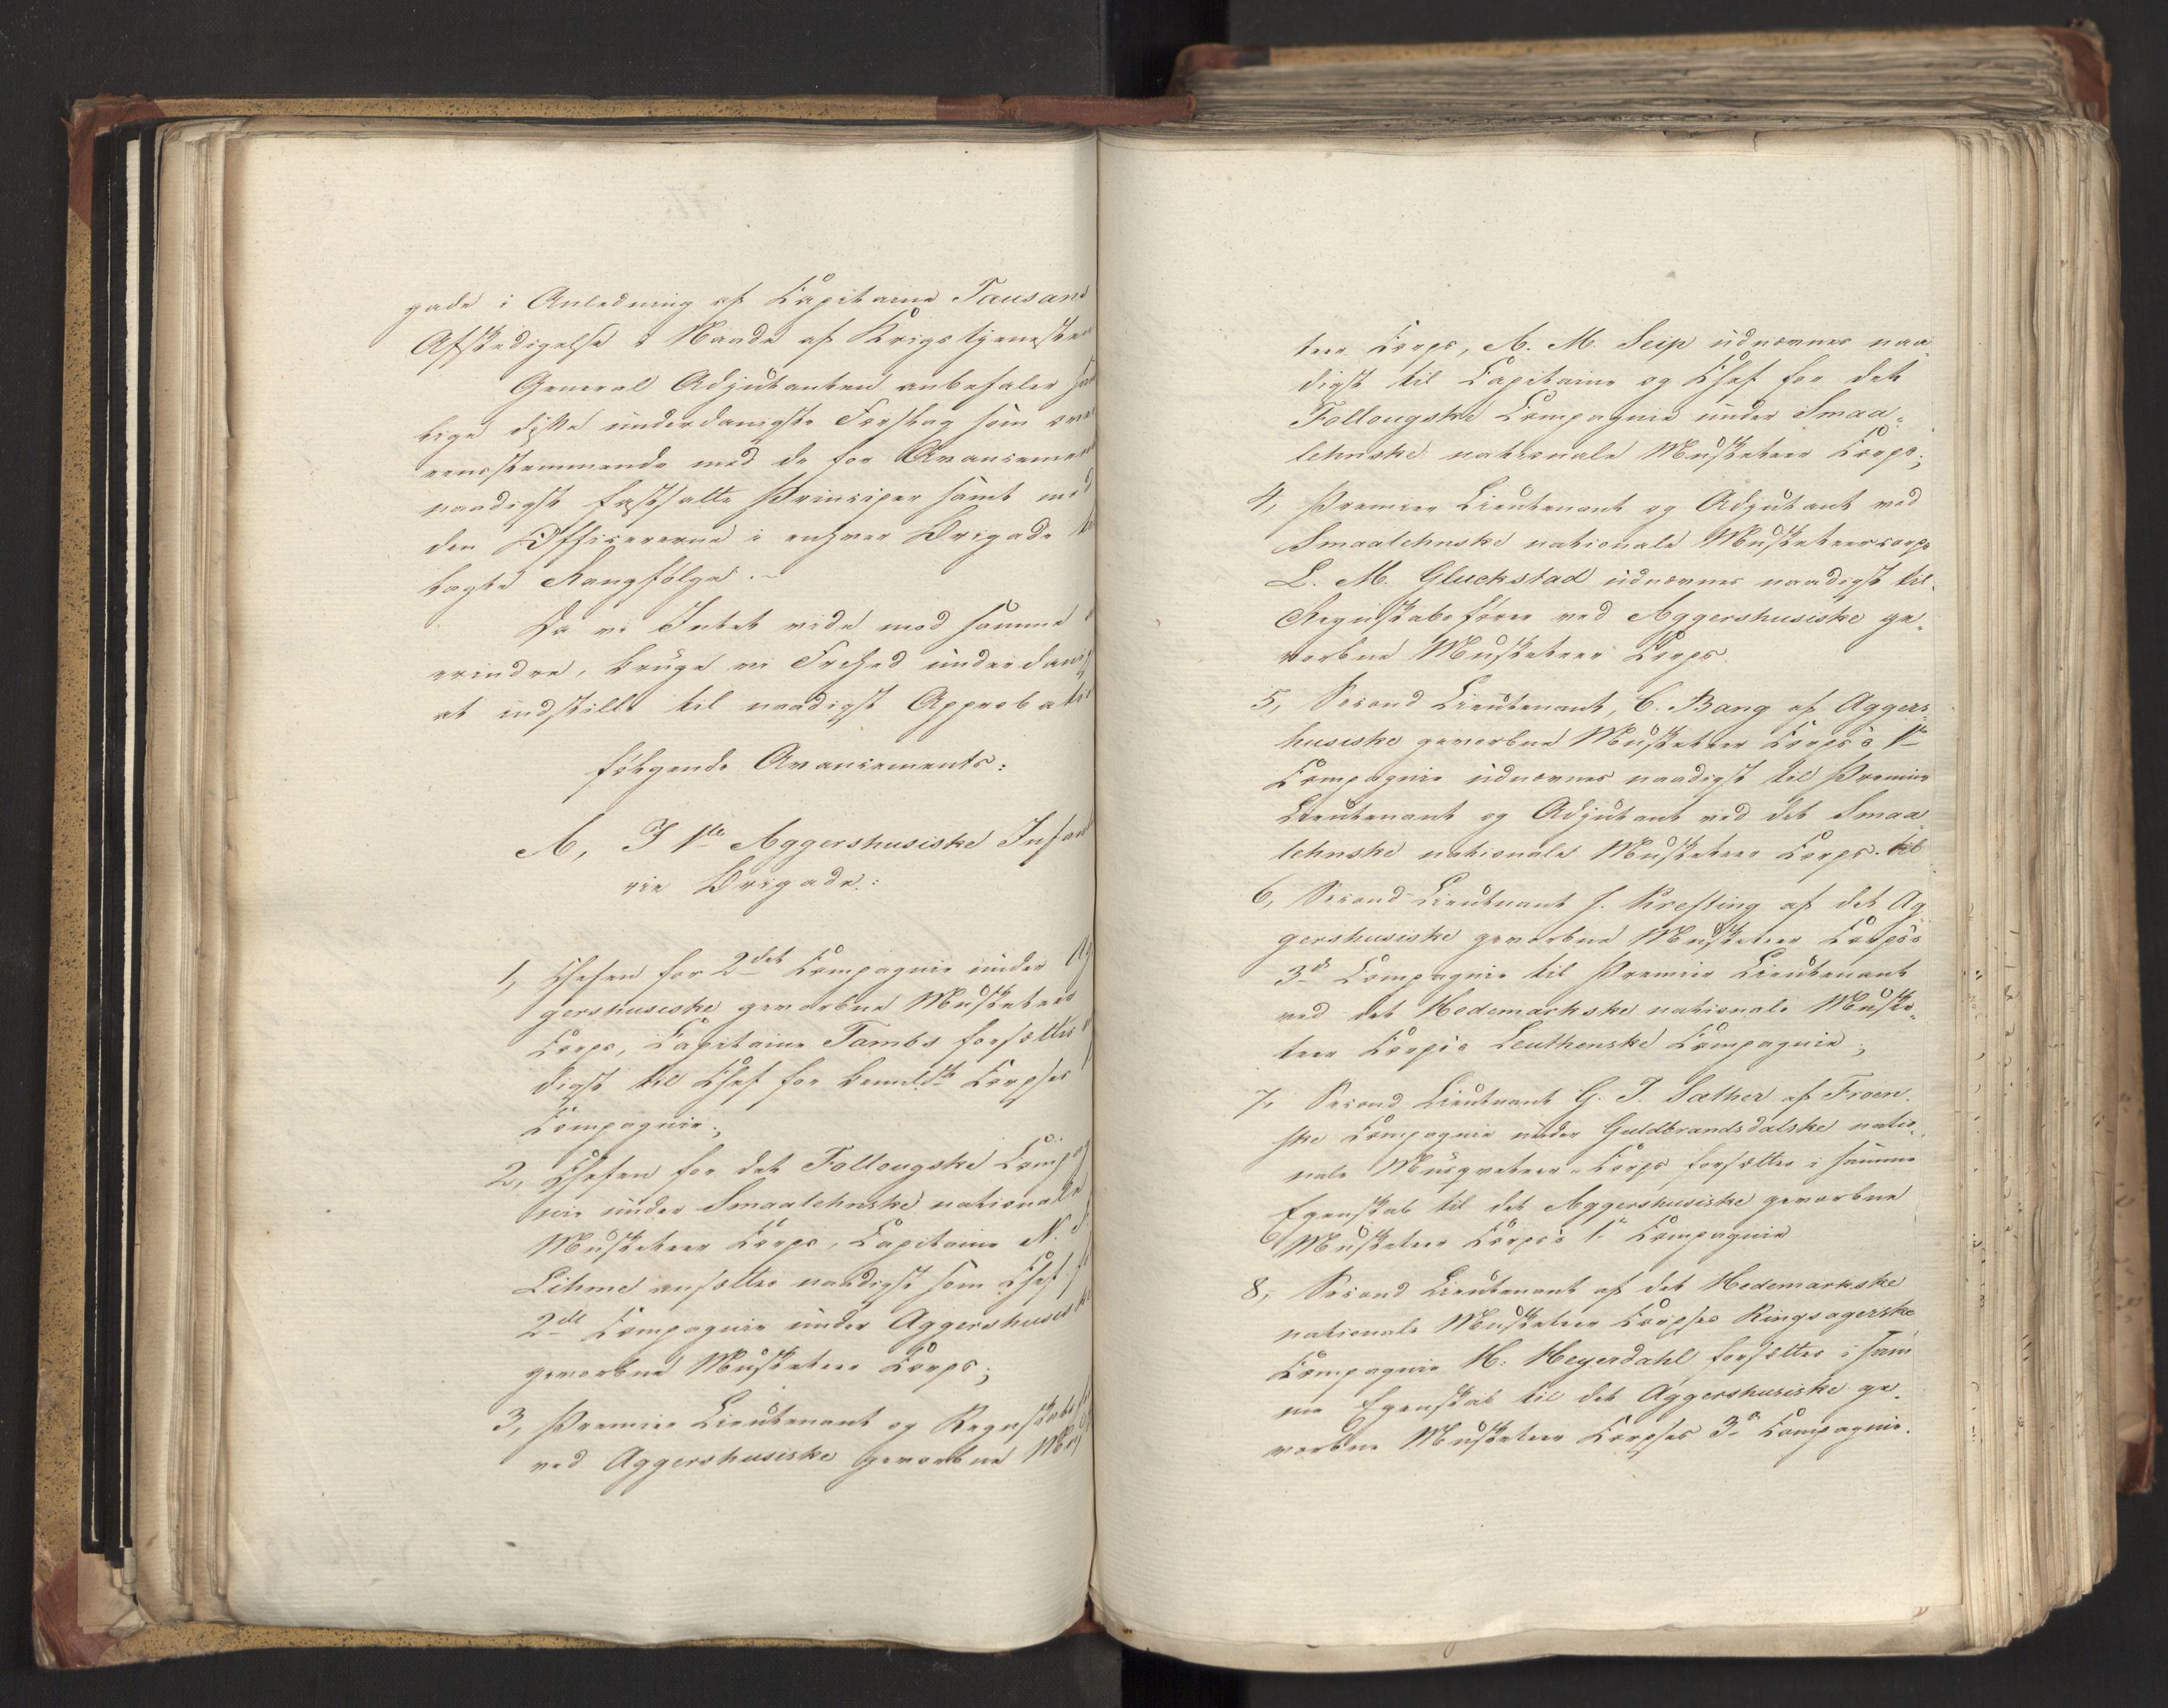 gade i Anledning af Capitaine Tausans
Afskedigelse i Naade af Krigstjenesten
General Adjutanten anbefaler sam
lige disse underdanigste Forslag som over
eensstemmende med de for Avancement
naadigst fastsatte Principer samt med
den Officererne i enhver Brigade til
lagte Rangfölge.
Da vi Intet vide mod samme at
erindre, bruge vi Frihed underdanigst
at indstille til naadigst Approbation
fölgende Avancements:
A, I 1ste Aggershusiske Infante
rie Brigade:
1, Chefen for 2det Compagnie under Ag
gershusiske gevorbne Musketeer
Corps, Capitaine Tambs forsættes
digst til Chef for bemeldte Corpses
Compagnie;
2, Chefen for det Follougske Compag
nie under Smaalehnske nationale
Musketeer Corps, Capitaine N.
Lihme ansættes naadigst som Chef for
2det Compagnie under Aggershusiske
gevorbne Musketeer Corps;
3, Premier Lieutenant og Regnskabsf
ved Aggershusiske gevorbne Mus
teer Corps, A. M. Seip udnævnes naa
digst til Capitaine og Chef for det
Follougske Compagnie under Smaa-
lehnske nationale Musketeer Corps;
4, Premier Lieutenant og Adjutant ved
Smaalehnske nationale Musketeercorps
L. M. Gluckstad udnævnes naadigst til
Regnskabsförer ved Aggershusiske ge-
vorbne Musketeer Corps.
5, Second Lieutenant, C. Bang af Aggers-
husiske gevorbne Musketeer Corps's 1ste
Compagnie udnævnes naadigst til Premier
Lieutenant og Adjutant ved det Smaa
lehnske nationale Musketeer Corps. til
6, Second Lieutnant J. Krefting af det Ag
gershusiske gevorbne Musketeer Corps's
3de Compagnie til Premier Lieutenant
ved det Hedemarkske nationale Muske-
teer Corps's Leuthenske Compagnie;
7, Second Lieutnant G. T. Sæther af Froen-
ske Compagnie under Guldbrandsdalske natio-
nale Musqveteer-Corps forsættes i samme
Egenskab til det Aggershusiske gevorbne
Musketeer Corps's 1ste Compagnie
8, Second Lieutenant af det Hedemarkske
nationale Musketeer Corpses Ringsagerske
Compagnie H. Heyerdahl forsættes i sam
me Egenskab til det Aggershusiske ge-
vorbne Musketeer Corpses 3de Compagnie.